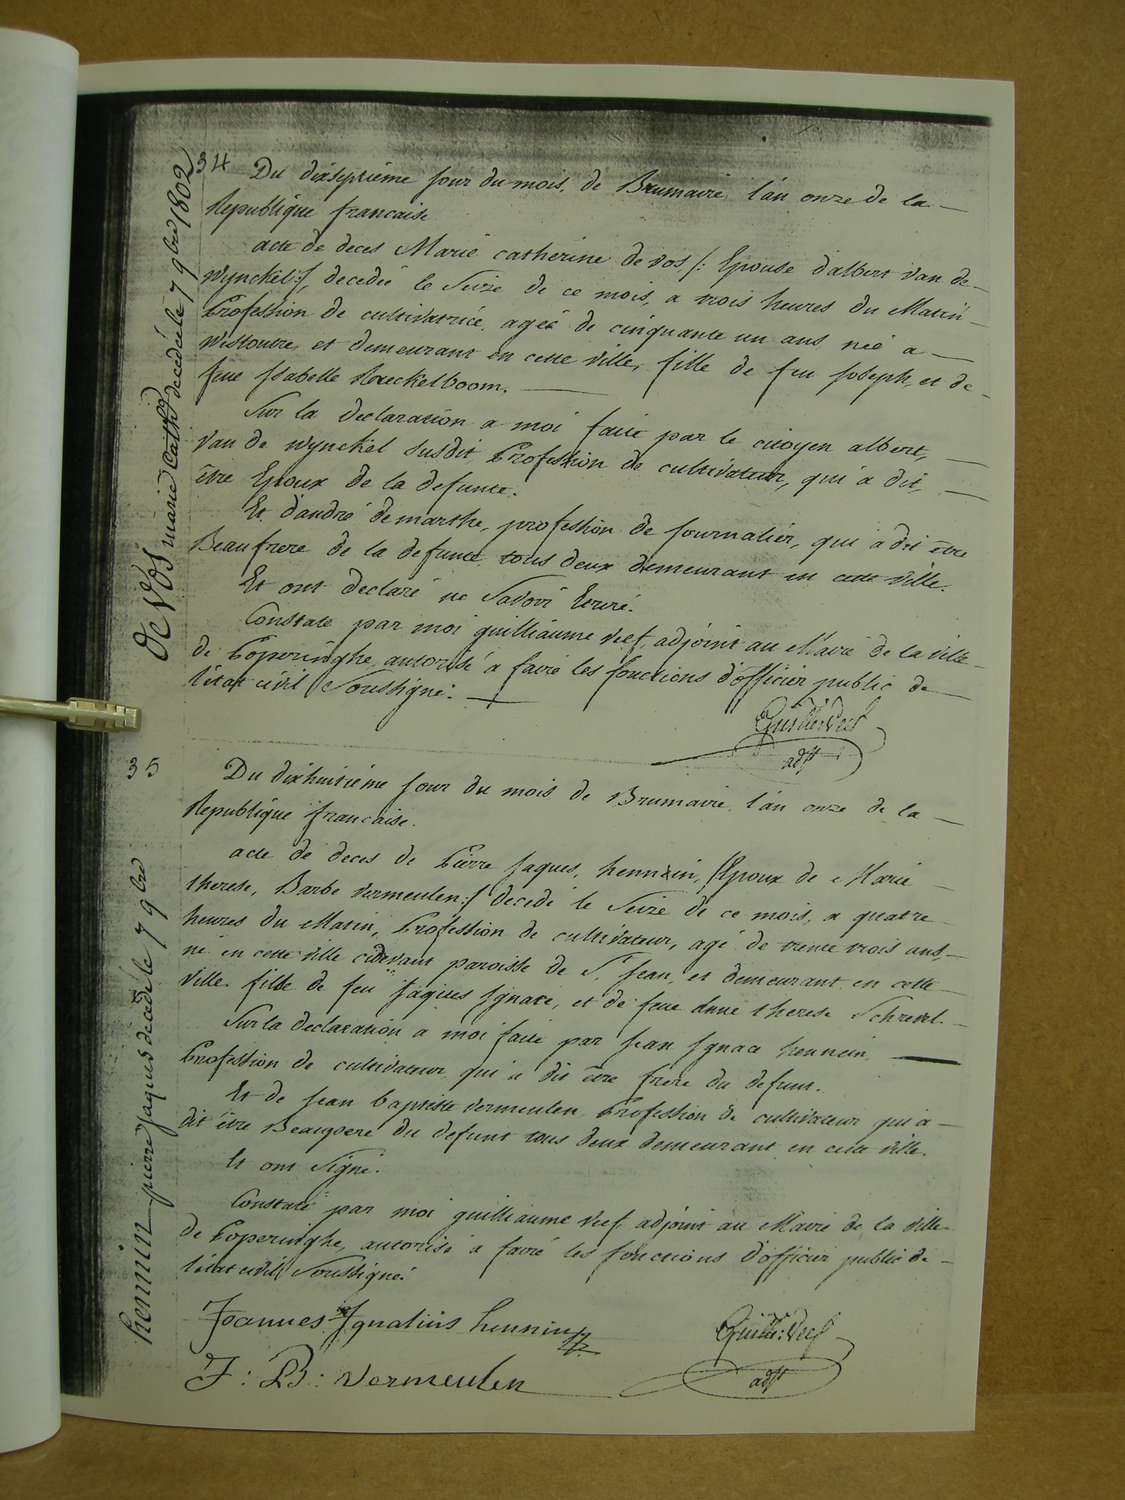 34
Du dixseptieme jour du mois de Brumaire l'an onze de la —
Republique francaise
acte de deces Marie catherine de vos /: Epouse d'albert van de-
wynckel :/, decedée le Seize de ce mois, a trois heures du Matin
Profession de cultivatrice, ageé de cinquante un ans neé a —
westoutre et demeurant en cette ville, fille de feu Joseph, et de-
feue Isabelle Raeckelboom. —
Sur la declaration a moi faite par le citoyen albert, —
van de wynckel susdit Profession de cultivateur, qui a dit, —
être Epoux de la defunte.
Et d'andré demarthe, profession de journalier, qui a dit être
Beaufrere de la defunte tous deux demeurant en cette ville.
Et ont declaré ne Savoir Ecrire.
Constaté par moi guilliaume veef, adjoint au Maire de la ville
de Poperinghe, autorisé a faire les fonctions d'officier public de —
l'état civil Soussigné. —
Guille: Veef
adjt
de Vos marie Cathe decedée le 7 9bre 1802
35
Du dixhuitieme jour du mois de Brumaire l'an onze de la —
Republique francaise.
acte de deces de Pierre Jaques, hennin, /Epoux de Marie —
therese, Barbe vermeulen :/ decedé le Seize de ce mois, a quatre
heures du Matin, Profession de cultivateur, agé de trente trois ans, —
né en cette ville cidevant paroisse de St Jean, et demeurant en cette —
ville. fils de feu Jaques Ignace, et de feue Anne therese Schrevel. —
Sur la declaration a moi faite par Jean Ignace hennin —
Profession de cultivateur qui a dit être frere du defunt.
Et de Jean baptiste vermeulen Profession de cultivateur qui a —
dit être Beaupere du defunt tous deux demeurant en cette ville.
Et ont Signé.
Constaté par moi guilliaume veef adjoint au Maire de la ville-
de Poperinghe, autorisé a faire les fonctions d'officier public de —
l'état civil Soussigné.
Joannes Ignatius hennin
Guille: Veef
adjt
J: B: Vermeulen
hennin pierre Jaques decedé le 7 9bre